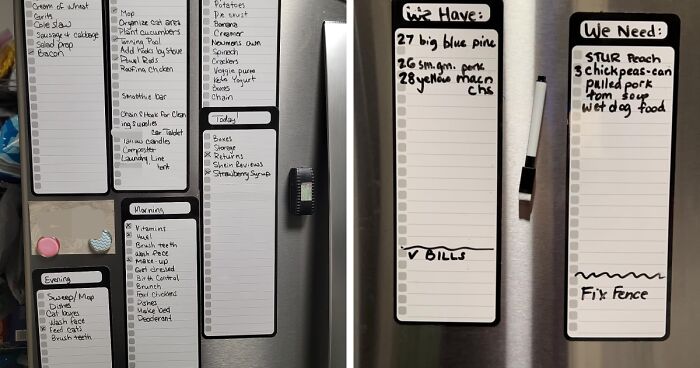 Cream of wheat
Grits
Cole slaw
Sausage & cabbage
Salad prep
Bacon
Mop
Organize cat area
Plant cucumbers
Tanning Pool
Add Rocks by Stove
Dowel Rods
Roofing Chicken
Smoothie bar
Chain & Hook For Clean
ing Supplies
Car Tablet
candles
Composter
Laundry Line
tent
Potatoes
Pie crust
Banana
Creamer
Newmans own
Spinach
Crackers
Veggie puree
Keto Yogurt
Boxes
Chain
Today!
Boxes
Storage
Returns
Shein Reviews
Strawberry Syrup
Morning
Vitamins
Brush teeth
Wash Face
Make-up
Get dressed
Birth Control
Brunch
Feed Chickens
Dishes
Make bed
Deodorant
Evening
Sweep/Mop
Dishes
Cat boxes
Wash face
Feed cats
Brush teeth
We Have:
27 big blue pine
26 sm.gm. pork
28 yellow macn
chs
√ BILLS
We Need:
STUR Peach
3 chickpeas-can
pulled pork
tom soup
wet dog food
Fix Fence